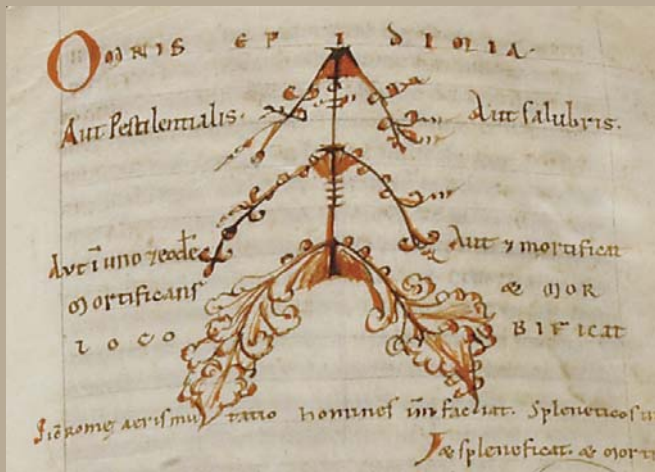 OMNIS EPIDIMIA.
Aut Pestilentialis.
Aut salubris.
Aut ī uno
mortificans
loco
Aut & mortificat
& MOR
BIFICAT
aeris mutatio homines
Spleneticos
& spleneficat. & mort